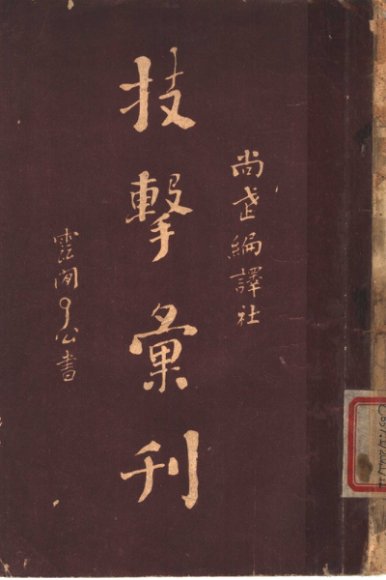 尚武編譯社
技擊彙刊
雲間 公書